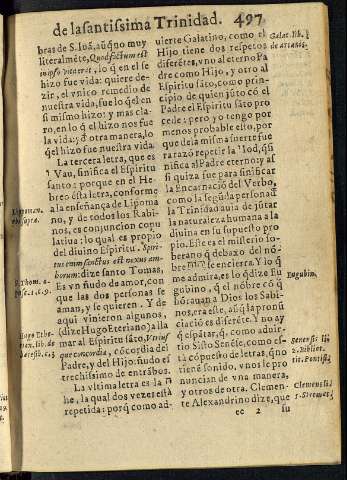 de la santissima Trinidad. 497
bras de S. Ioã, aũq̃ no muy
literalmẽte, Quod factum est
in ipso vita erat, lo q̃ en el se
hizo fue vida: quiere de-
zir, el vnico remedio de
nuestra vida, fue lo q̃ el en
si mismo hizo: y mas cla-
ro, en lo q̃ el hizo nos fue
la vida: y d̃ otra manera, lo
q̃ el hizo fue nuestra vida.
La tercera letra, que es
Vau, sinifica el Espiritu
santo: porque en el He-
breo esta letra, conforme
a la enseñança de Lipoma
no, y de todos los Rabi-
nos, es conjuncion copu
latiua: lo qual es propio
del diuino Espiritu. Spiri-
tus enim sanctus est nexus am-
borum: dize santo Tomas,
Es vn ñudo de amor, con
que las dos personas se
aman, y se quieren. Y de
aqui vinieron algunos,
(dize Hugo Eteriano) a lla
mar al Espiritu sãto, Vtrius
que concordia, cõcordia del
Padre, y del Hijo: ñudo es
trechissimo de entrãbos.
La vltima letra es la ה
he, la qual dos vezes està
repetida: porq̃ como ad-
uierte Galatino, como el
Hijo tiene dos respetos
diferẽtes, vno al eterno Pa
dre como Hijo, y otro al
Espiritu sãto, como prin-
cipio de quien jũto cõ el
Padre el Espiritu sãto pro
cede: pero yo tengo por
menos probable esto, por
que de la misma suerte fue
razaõ repetir la Iod, q̃ si
nifica al Padre eterno: y as̃
si quiza fue para sinificar
la Encarnaciõ del Verbo,
como la segũda personad̃
la Trinidad auia de jũtar
la naturaleza humana a la
diuina en su supuesto pro
pio. Este es el misterio so-
berano q̃ debaxo del nõ-
bre se encierra. Y lo q̃
me admira, es lo q̃ dize Eu
gubino, que el nõbre cõ q̃
hõrauan a Dios los Sabi-
nos, era este, aũq̃ la pronũ
ciacion es diferẽte. Y no ay
q̃ espãtar, q̃, como aduir-
tio Sisto Senẽse, como es-
tà cõpuesto de letras, q̃ no
tienẽ sonido, vnos le pro
nuncian de vna manera,
y otros de otra. Clemen-
te Alexandrino dize, que
ee 2 su
Lipoman.
vbi supra.
D. Thom.
Hugo Ethe-
rian. lib. de
Galat. lib.
de arcanis.
Eugubin.
Senẽs. li.
2. Bibliot.
Clemens li.
5. Stromat.